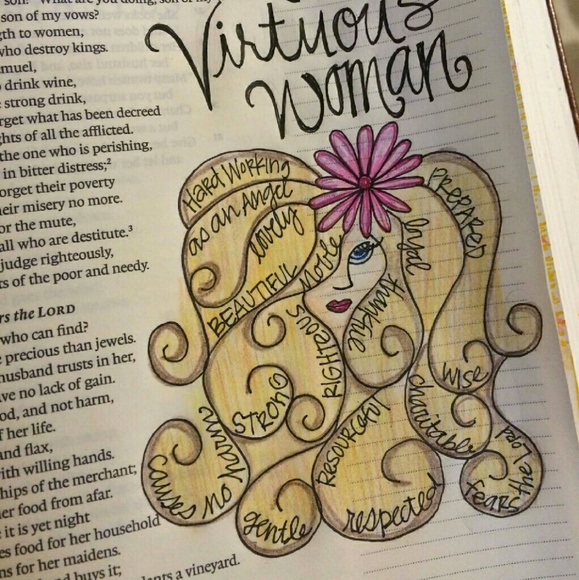 son of my vows?
gth to women,
who destroy kings.
muel,
drink wine,
strong drink,
rget what has been decreed
ghts of all the afflicted.
the one who is perishing,
in bitter distress;²
orget their poverty
heir misery no more.
or the mute,
all who are destitute.³
judge righteously,
ts of the poor and needy.
rs the LORD
who can find?
precious than jewels.
husband trusts in her,
ve no lack of gain.
od, and not harm,
f her life.
and flax,
ith willing hands.
hips of the merchant;
er food from afar.
it is yet night
es food for her household
ns for her maidens.
buys it;
lants a vineyard.
Virtuous
Woman
Hard Working
as an Angel
lovely
BEAUTIFUL
Noble
loyal
PREPARED
RIGHTEOUS
STRONG
wise
charitable
no harm
RESOURCEFUL
gentle
respected
Fears the Lord